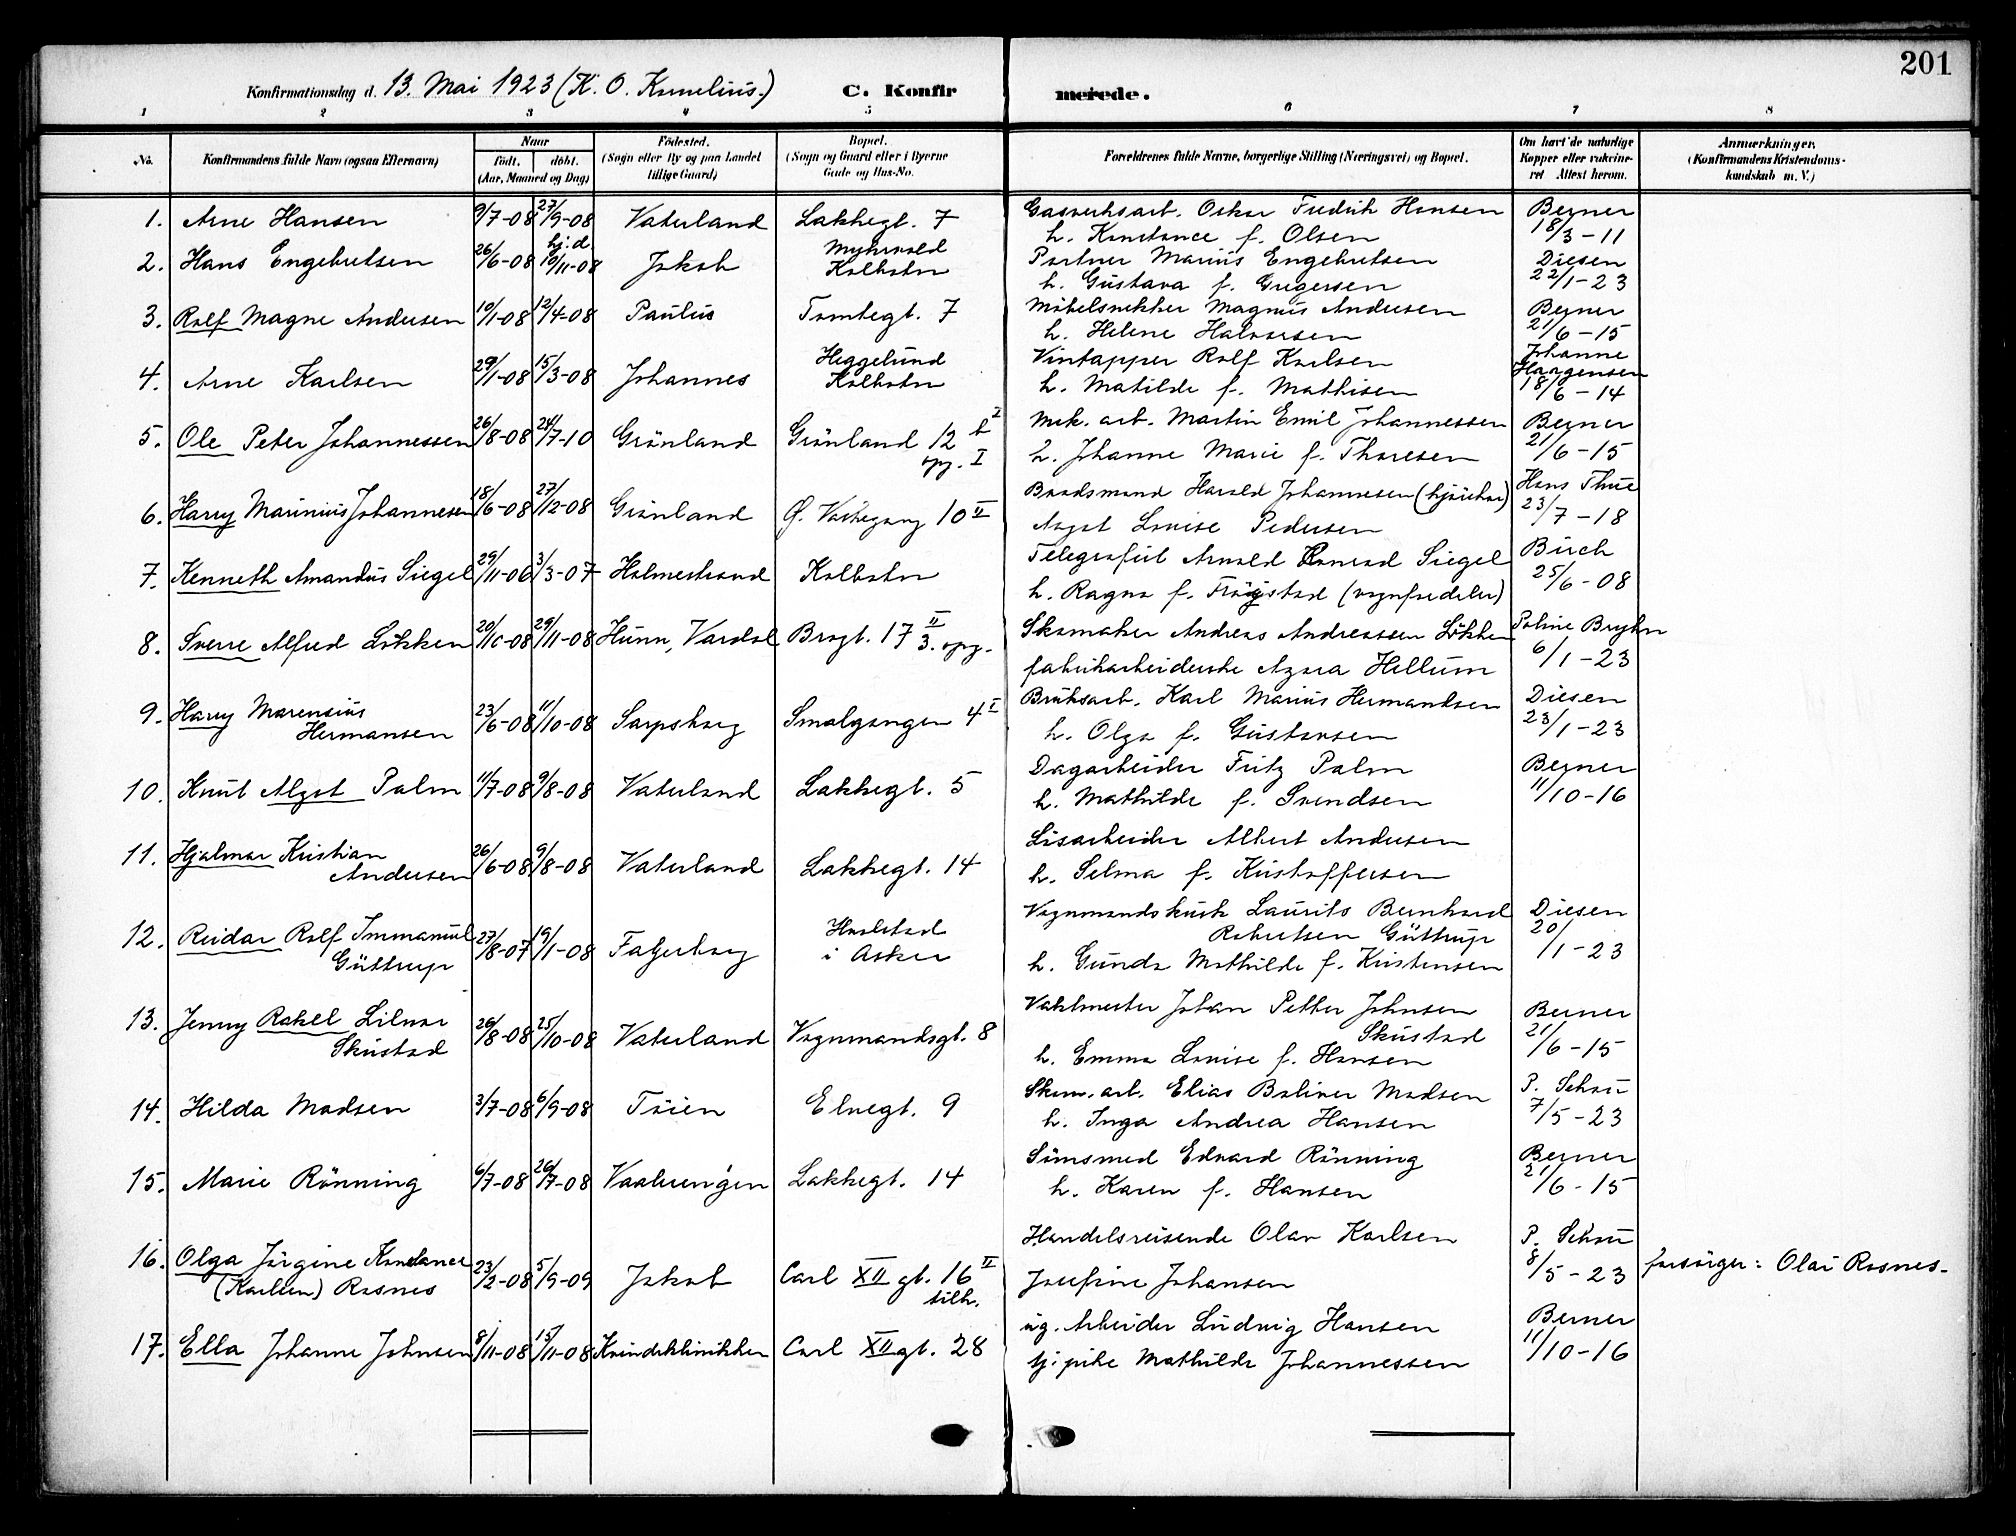 201
Konfirmationsdag d. 13. Mai 1923 (K. O. Kornelius.) C. Konfirmerede.
1 2 3 4 5 6 7 8
No. Konfirmandens fulde Navn (ogsaa Efternavn) Naar født, døbt. (Aar, Maaned og Dag) Fødested. (Sogn eller By og paa Landet tillige Gaard) Bopæl. (Sogn og Gaard eller i Byerne Gade og Hus-No. Forældrenes fulde Navne, borgerlige Stilling (Næringsvei) og Bopæl. Om havt de naturlige Kopper eller vakcineret Attest herom. Anmærkninger, (Konfirmandens Kristendomskundskab m. V.)
1. Arne Hansen 9/7-08 27/9-08 Vaterland Lakkegt. 7 Gasverksarb. Oskar Fredrik Hansen Berner
h. Konstance f. Olsen 18/3-11
2. Hans Engebretsen 26/6-08 hj.d. 10/11-08 Jakob Myhrvold Kolbotn Portner Marius Engebretsen Diesen
h. Gustava f. Gregersen 22/1-23
3. Rolf Magne Andersen 10/1-08 12/4-08 Paulus Tomtegt. 7 Möbelsnekker Magnus Andersen Berner
h. Helene Halvorsen 21/6-15
4. Arne Karlsen 29/1-08 15/3-08 Johannes Heggelund Kolbotn Vintapper Rolf Karlsen Johanne Haagensen
h. Matilde f. Mathisen 18/6-14
5. Ole Peter Johannessen 26/8-08 24/7-10 Grönland Grönland 12 b I opg. I Mek. arb. Martin Emil Johannessen Berner
h. Johanne Marie f. Thoresen 21/6-15
6. Harry Marinius Johannesen 18/6-08 27/12-08 Grönland Ø. Vaskegang 10 II Baadsmand Harald Johannesen Hans Thue
Aagot Louise Pedersen 23/7-18
7. Kenneth Amandus Siegel 29/11-06 3/3-07 Holmestrand Kolbotn Telegrafist Arnold Konrad Siegel Birch
h. Ragna f. 25/6-08
8. Sverre Alfred Lökken 20/10-08 29/11-08 Hunn, Vardal Brogt. 17 II 3. opg. Skomaker Andreas Andreassen Lökken Poline Bryhn
fabrikarbeiderske Azora Hellum 6/1-23
9. Harry Marensius Hermansen 23/6-08 11/10-08 Sarpsborg Smalgangen 4 I Bruksarb. Karl Marius Hermandsen Diesen
h. Olga f. Gustavsen 23/1-23
10. Knut Algot Palm 11/7-08 9/8-08 Vaterland Lakkegt. 5 Dagarbeider Fritz Palm Berner
h. Mathilde f. Svendsen 11/10-16
11. Hjalmar Kristian Andersen 26/6-08 9/8-08 Vaterland Lakkegt. 14 Lisarbeider Albert Andersen
h. Selma f. Kristoffersen
12. Reidar Rolf Immanuel Güttrup 27/8-07 19/1-08 Fagerborg i Asker Vognmandskusk Laurits Bernhard Robertsen Güttrup Diesen
h. Gunda Mathilde f. Kristensen 20/1-23
13. Jenny Rakel Lilnor Skustad 26/8-08 25/10-08 Vaterland Vognmandsgt. 8 Vaktmester Johan Petter Johnsen Skustad Berner
h. Emma Louise f. Hansen 21/6-15
14. Hilda Madsen 3/7-08 6/9-08 Töien Elvegt. 9 Skom. arb. Elias Boliner Madsen P. Schou
h. Inga Andrea Hansen 7/5-23
15. Marie Rönning 6/7-08 26/7-08 Vaalerengen Lakkegt. 14 Smusmed Edvard Rönning Berner
h. Karen f. Hansen 21/6-15
16. Olga Jörgine Konstance (Karlsen) Rosnes 23/2-08 5/9-09 Jakob Carl XII gt. 16 II tilh. Handelsreisende Olav Karlsen P. Schou
Josefine Johansen 8/5-23 forsörger: Olai Rosnes.
17. Ella Johanne Johnsen 8/11-08 15/11-08 Kvindeklinikken Carl XII gt. 28 ug. Arbeider Ludvig Hansen Berner
tj. pike Mathilde Johannessen 11/10-16